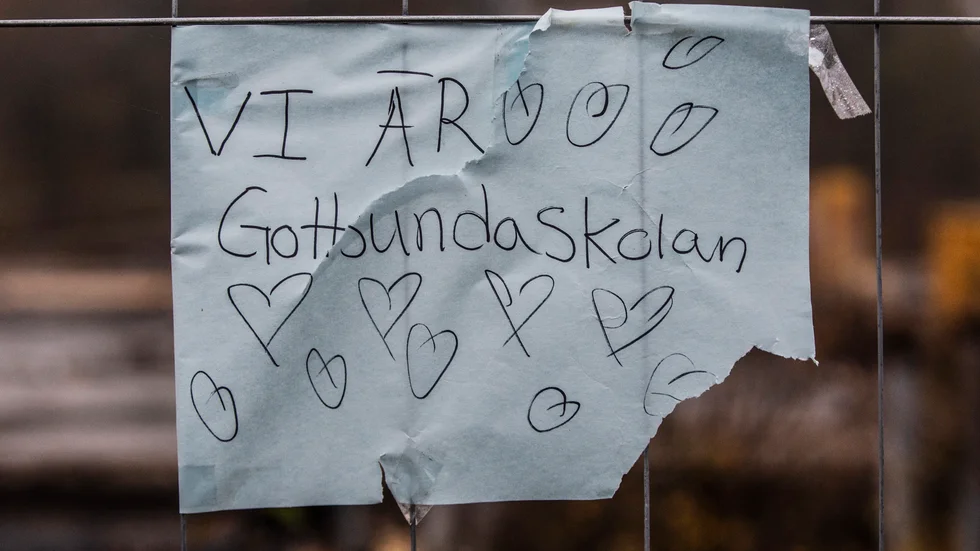 VI ÄR
Gottsundaskolan